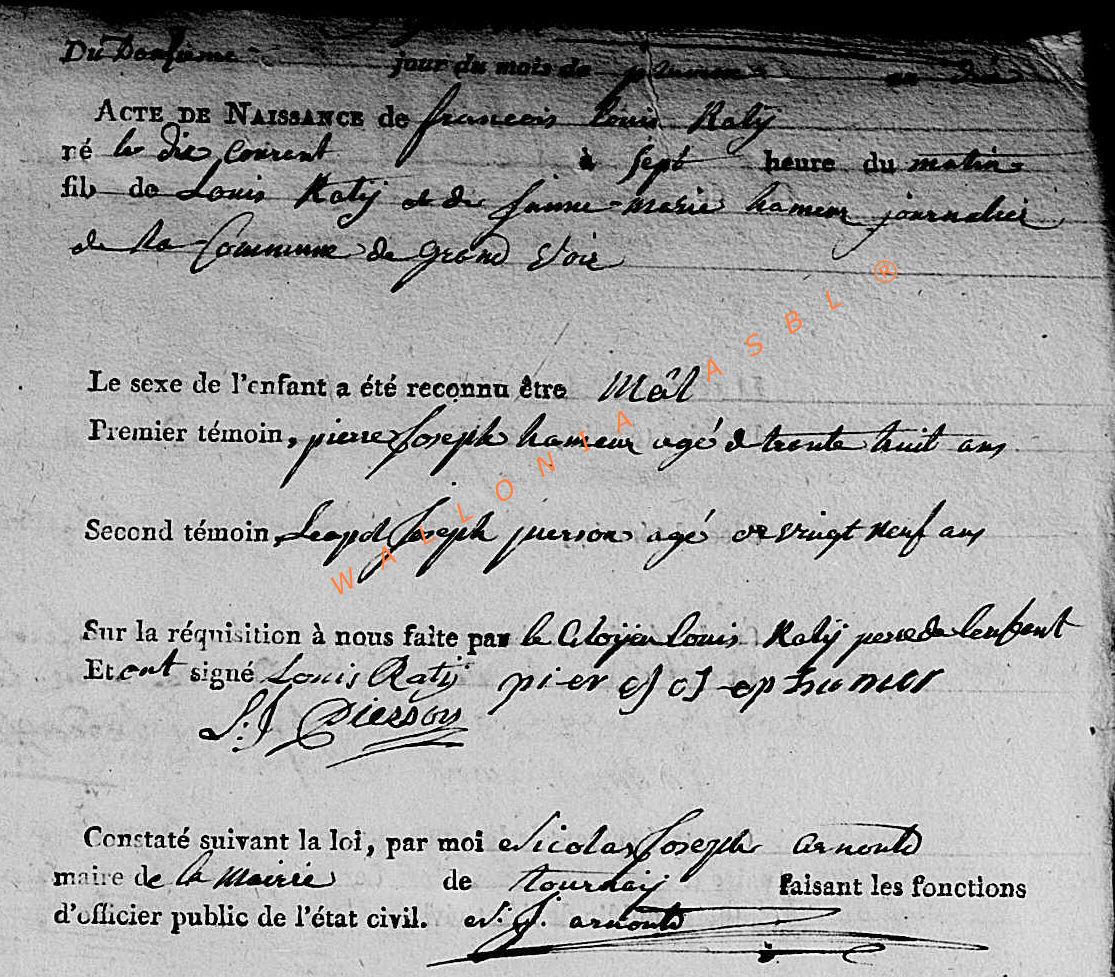 Du Douzieme jour du mois de an dix
ACTE DE NAISSANCE de francois Louis Ratÿ
né le dix Courent à sept heure du matin
fils de Louis Ratÿ et de jeanne marie hameur journalier
de la Commune de grand Voir
Le sexe de l'enfant a été reconnu être Mâl
Premier témoin, pierre Joseph hameur agé de trente huit ans
Second témoin, Leopd Joseph pierson agé de vingt neuf ans
Sur la réquisition à nous faite par le Citoÿen Louis Ratÿ pere de lenfant
Et ont signé Louis Ratÿ pier
L: J Pierson
Constaté suivant la loi, par moi Nicolas Joseph arnould
maire de la Mairie de tournaÿ faisant les fonctions
d'officier public de l'état civil. N. J. arnould
WALLONIA ASBL ®